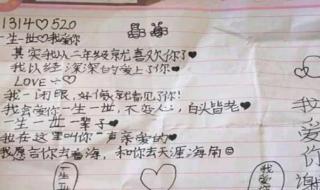 1314♡520
一生一世♡我爱你
其实我从二年级就喜欢你了!♥
我以经深深的爱上了你♥
LOVE ♡
我一闭眼,好像就看见了你!
我会爱你一生一世,不变心,白头皆老♥
一生一世一辈子♥
我在这里叫你一声亲爱的♥
我愿言你去看海,和你去天涯海角☺
我爱你
我爱你